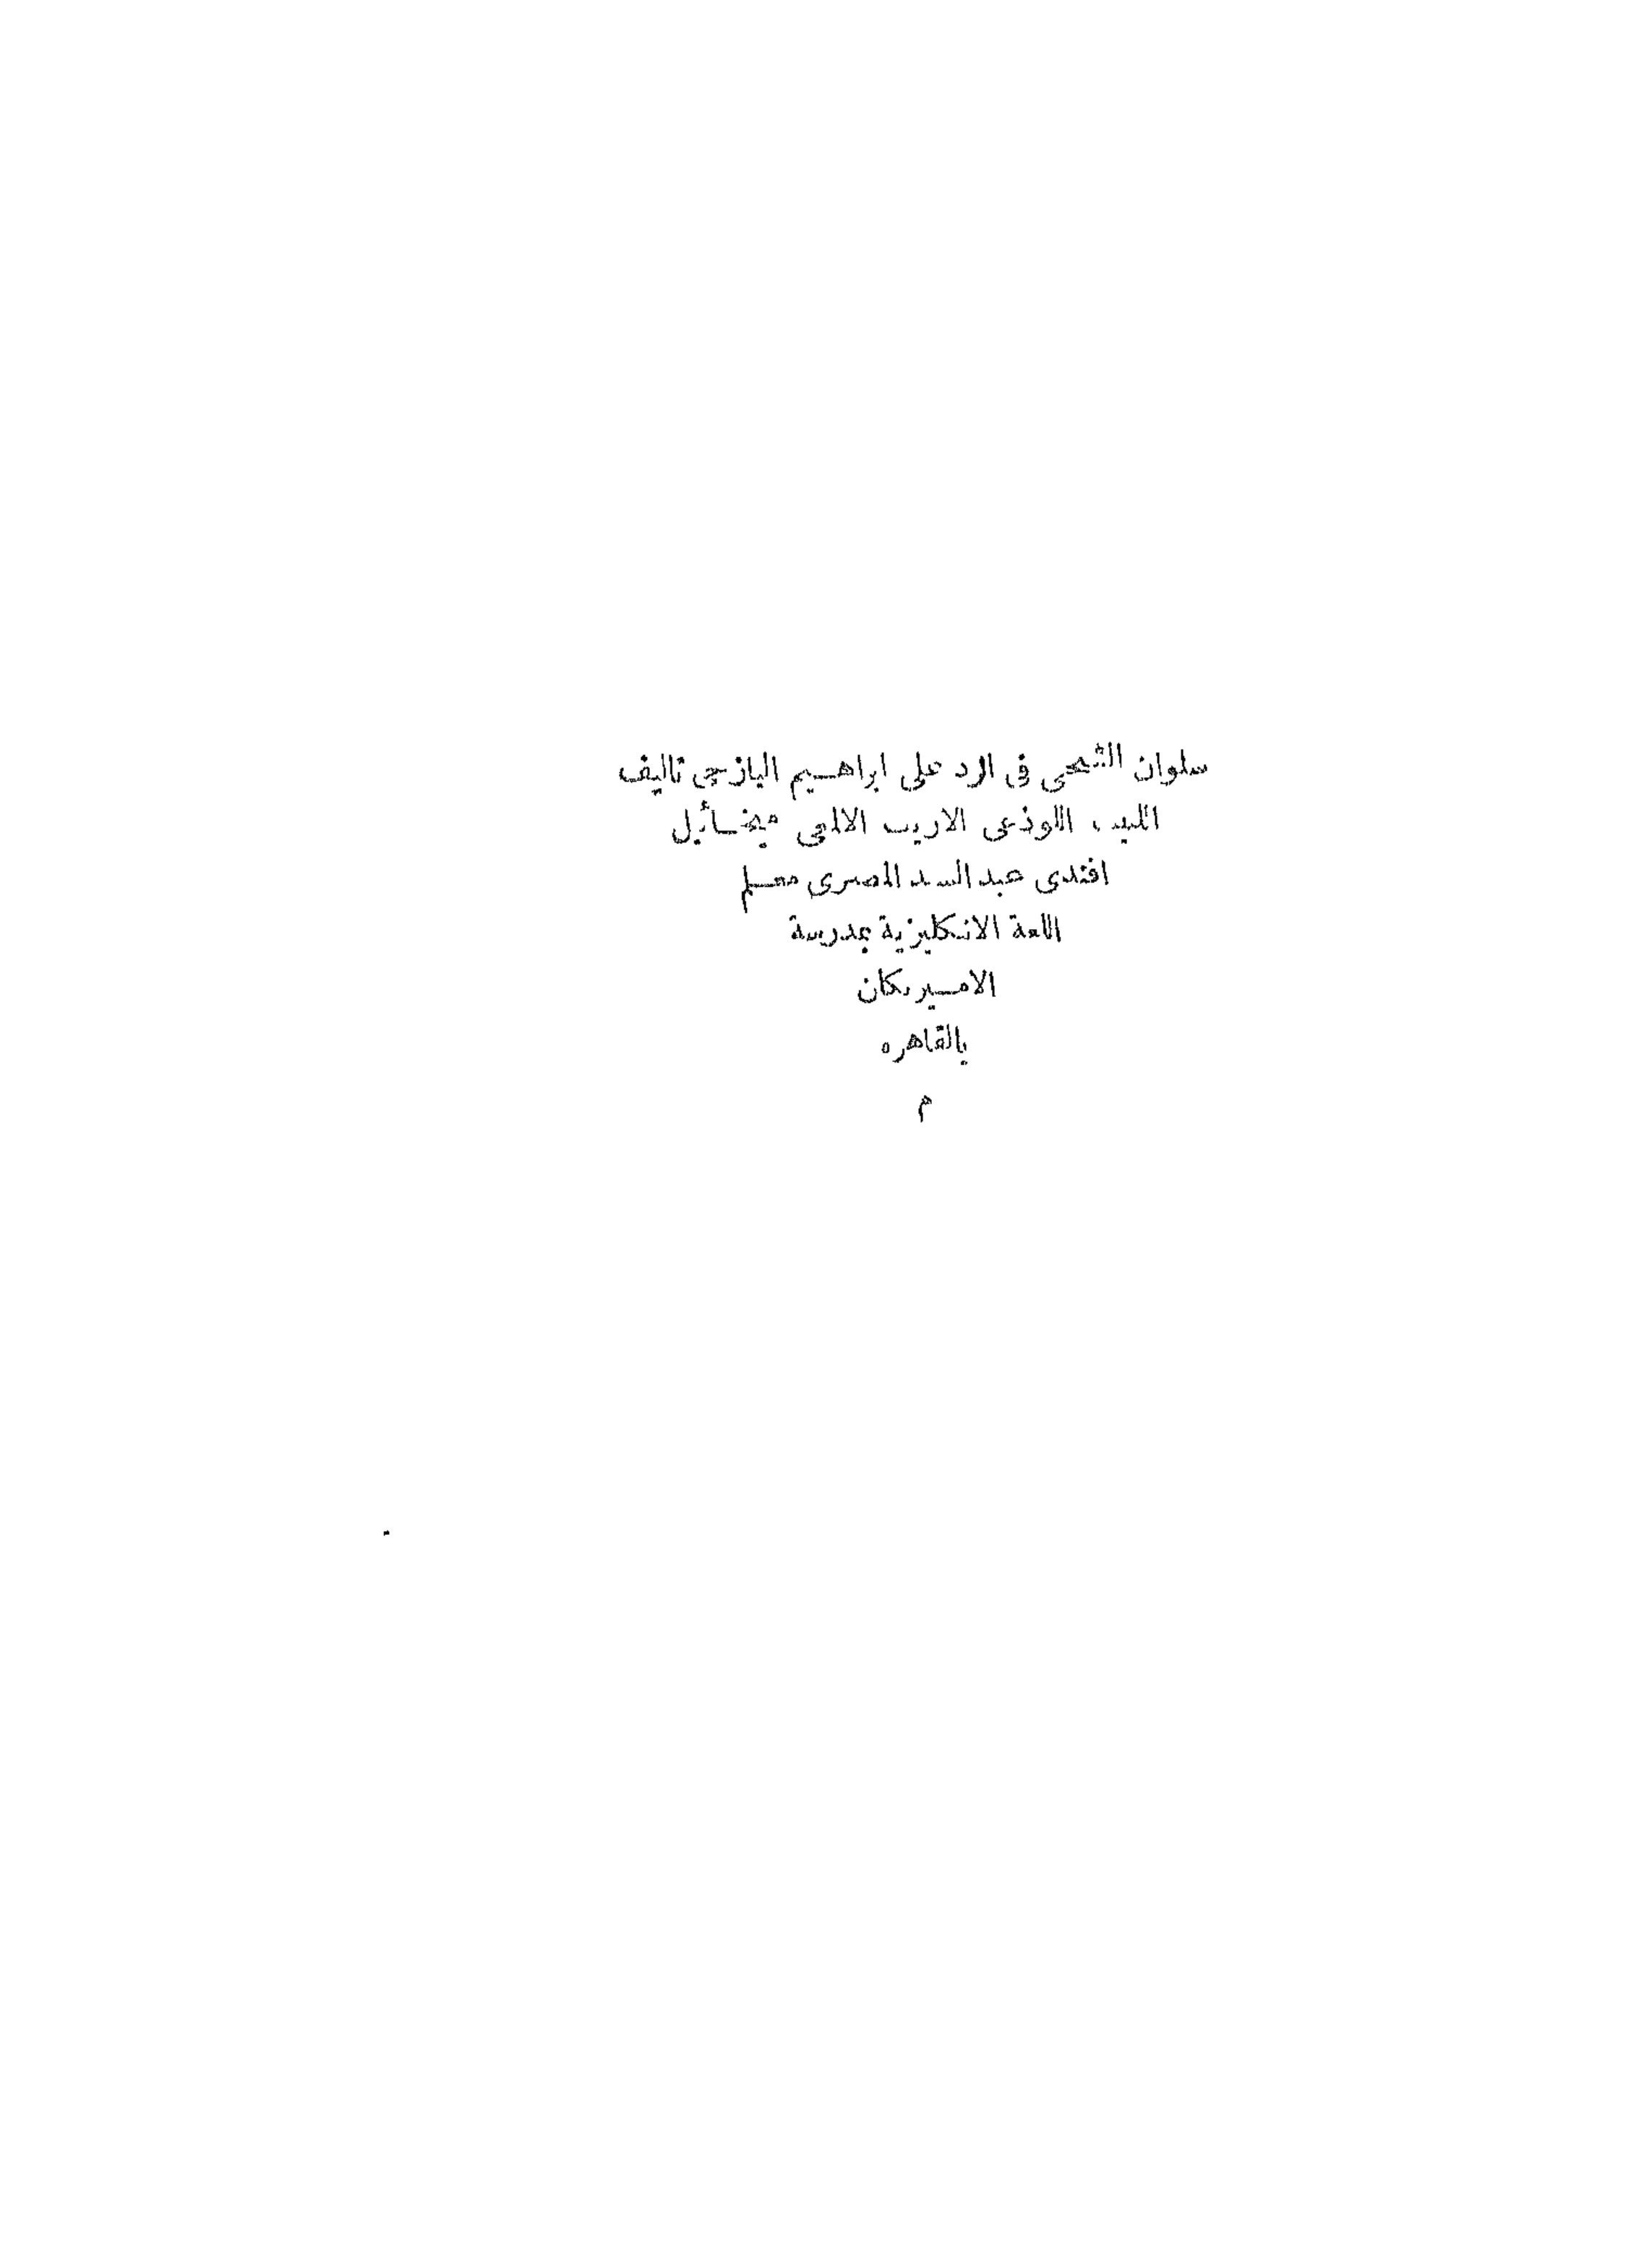 سلوان الشجى فى الرد على ابراهيم اليازجى تاليف
اللبيب اللوذعى الاريب الالمعى ميخائيل
افندى عبد السيد المصرى معلم
اللغة الانكليزية بمدرسة
الاميريكان
بالقاهره
م